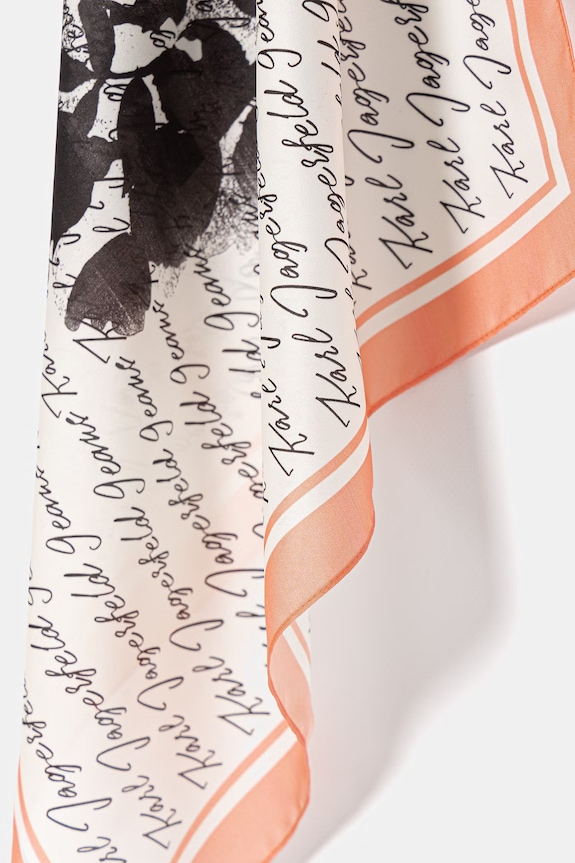 Karl Lagerfeld Jeans
Karl Lagerfeld Jeans
Karl Lagerfeld Jeans
Karl Lagerfeld Jeans
Karl Lagerfeld Jeans
Karl Lagerfeld
Karl Lagerf
Karl Lagerf
Karl Lage